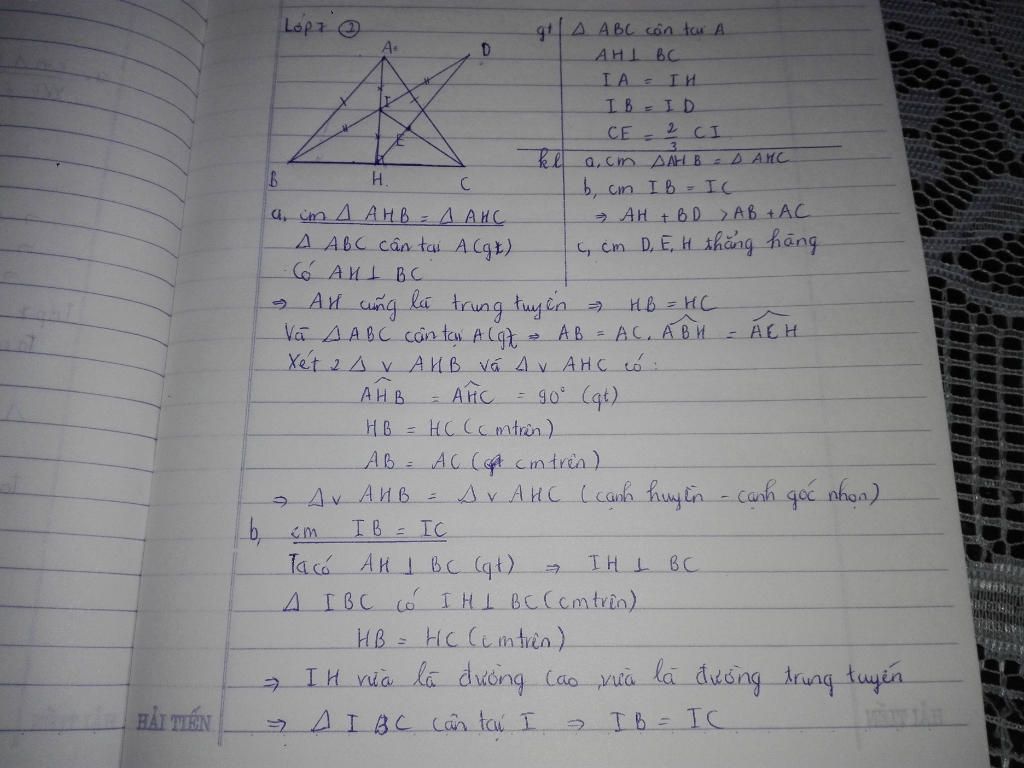 Lớp 7 ②
A
D
I
E
B
H
C
gt Δ ABC cân tại A
AH ⊥ BC
IA = IH
IB = ID
CE = 2/3 CI
kl a, cm ΔAHB = Δ AHC
b, cm IB = IC
⇒ AH + BD > AB + AC
c, cm D, E, H thẳng hàng
a, cm Δ AHB = Δ AHC
Δ ABC cân tại A (gt)
Có AH ⊥ BC
⇒ AH cũng là trung tuyến ⇒ HB = HC
Và Δ ABC cân tại A (gt ⇒ AB = AC, ABH = ACH
Xét 2 Δ v AHB và Δ v AHC có :
AHB = AHC = 90° (gt)
HB = HC (cmtrên)
AB = AC (cmtrên)
⇒ Δv AHB = Δv AHC (cạnh huyền - cạnh góc nhọn)
b, cm IB = IC
Ta có AH ⊥ BC (gt) ⇒ IH ⊥ BC
Δ IBC có IH ⊥ BC (cmtrên)
HB = HC (cmtrên)
⇒ IH vừa là đường cao, vừa là đường trung tuyến
⇒ Δ IBC cân tại I ⇒ IB = IC
HẢI TIẾN